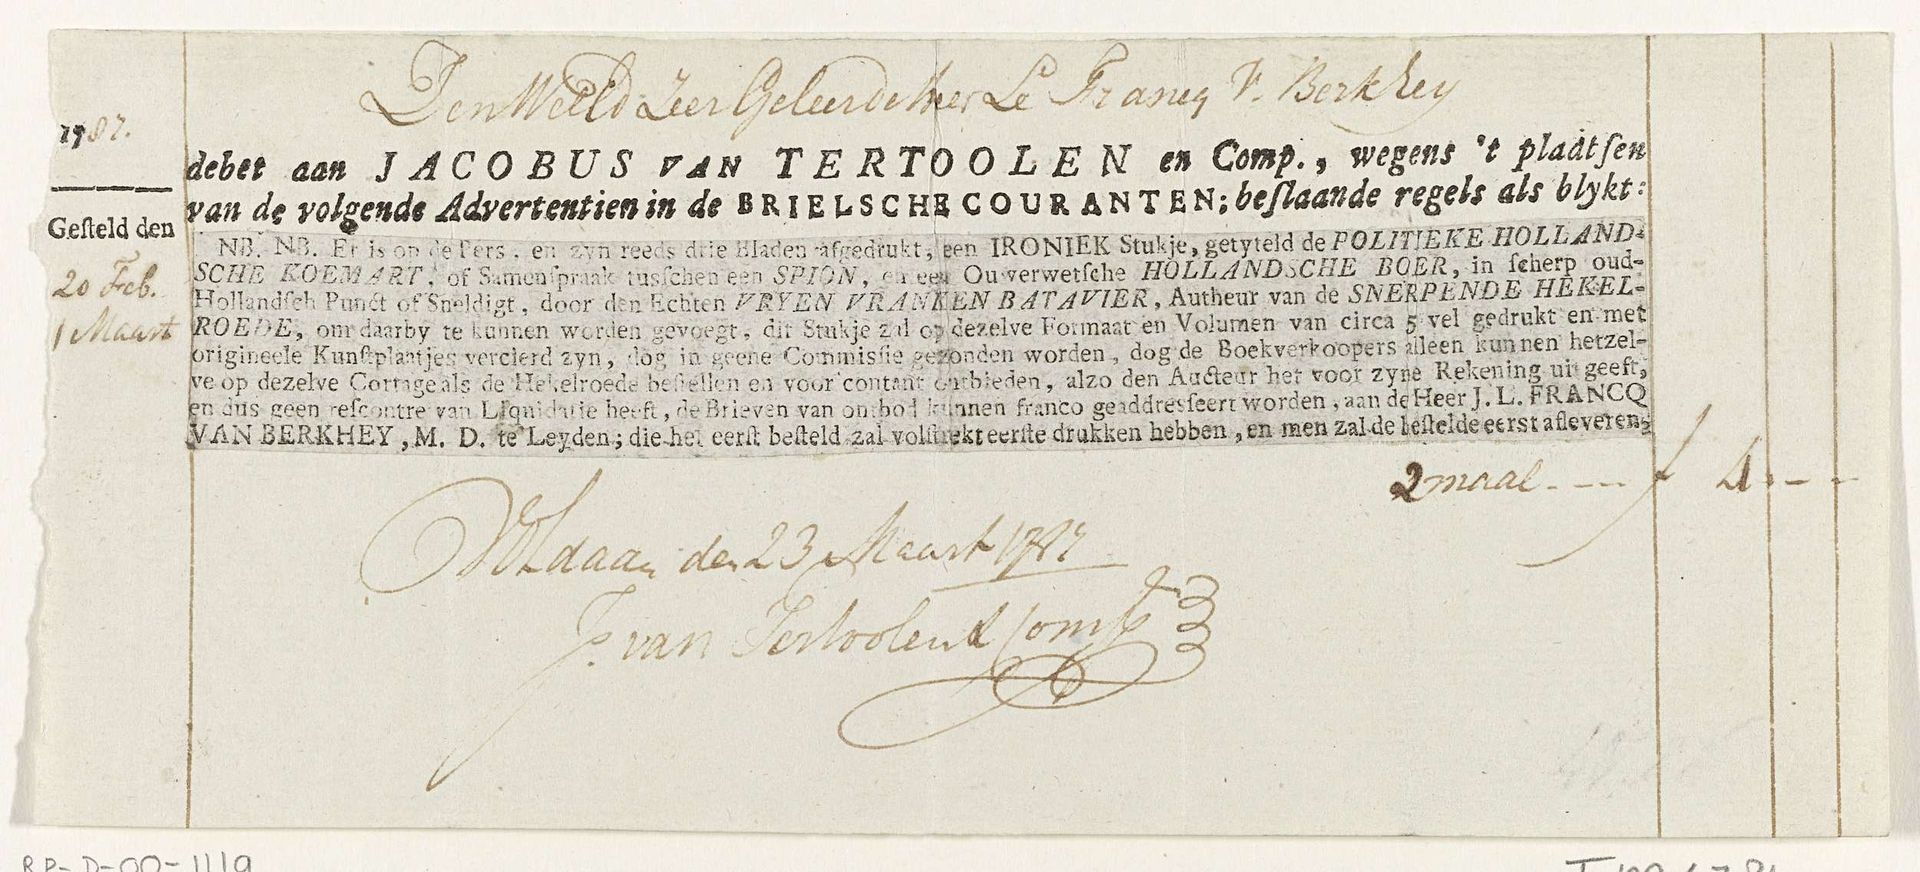 Den Weled Zeer Geleerde Heer Le Francq V. Berkhey
1787.
debet aan JACOBUS VAN TERTOOLEN en Comp., wegens 't pladtſen
van de volgende Advertentien in de BRIELSCHE COURANTEN; beſlaande regels als blykt:
Geſteld den
20 Feb.
1 Maart
NB. NB. Er is op de Pers, en zyn reeds drie Bladen afgedrukt, een IRONIEK Stukje, getyteld de POLITIEKE HOLLAND-
SCHE KOEMART, of Samenſpraak tusſchen een SPION, en een Ouverwetſche HOLLANDSCHE BOER, in ſcherp oud-
Hollandſch Punct of Sneldigt, door den Echten VRYEN VRANKEN BATAVIER, Autheur van de SNERPENDE HEKEL-
ROEDE, om daarby te kunnen worden gevoegt, dit Stukje zal op dezelve Formaat en Volumen van circa 5 vel gedrukt en met
origineele Kunſtplaatjes vercierd zyn, dog in geene Commisſie gezonden worden, dog de Boekverkoopers alleen kunnen hetzel-
ve op dezelve Corrage als de Hekelroede beſtellen en voor contant ontbieden, alzo den Aucteur het voor zyne Rekening uitgeeft,
en dus geen reſcontre van Liquidatie heeft, de Brieven van ontbod kunnen franco geaddresſeert worden, aan de Heer J. L. FRANCQ
VAN BERKHEY, M. D. te Leyden; die het eerſt beſteld zal volſtrekt eerſte drukken hebben, en men zal de beſtelde eerst afleveren.
2 maal ---- f 4:--
Voldaan den 23 Maart 1787
J. van Tertoolen & Comp
RP-D-00-1119